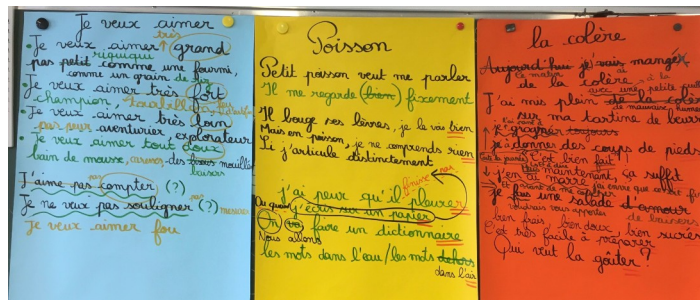 Je veux aimer
très
Je veux aimer grand
riquiqui
pas petit comme une fourmi,
comme un grain de riz
Je veux aimer très fort
champion,
Je veux aimer très loin
pas peur aventurier, explorateur
Je veux aimer tout doux
bain de mousse, des bisous mouillés
baisers
pas
J'aime pas compter (?)
pas
Je ne veux pas souligner (?)
Je veux aimer fou
Poisson
Petit poisson veut me parler
Il me regarde (bien) fixement
Il bouge ses lèvres, je le vois bien
Mais en poisson, je ne comprends rien
Si j'articule distinctement
finisse pas
j'ai peur qu'il pleurer
Ou quoi j'écris sur un papier
On va faire un dictionnaire
Nous allons
les mots dans l'eau / les mots dehors
dans l'air
la colère
Aujourd'hui je vais manger
ce matin ai
de la colère
avec une petite
J'ai mis plein de la colère
mauvaise humeur
sur ma tartine de beurre
je grogne toujours
je donnes des coups de pieds
C'est bien fait !
maintenant, ça suffit
j'en ai marre
je fais une salade d'amour
voudrais vous apporter de baisers
bien frais, bien doux, bien sucrés
C'est très facile à préparer
Qui veut la goûter ?